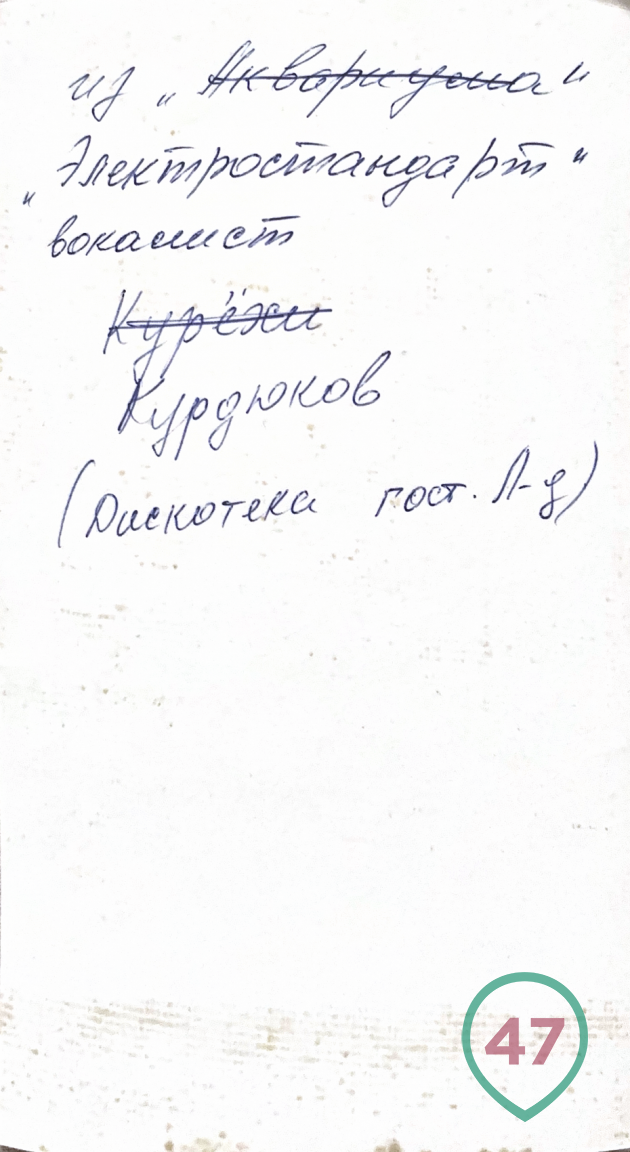 из „Аквариума"
„Электростандарт"
вокалист
Курёхи
Курдюков
(Дискотека гост. Л-д)
47